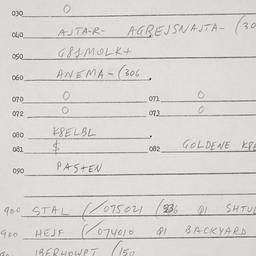 030 O
040 AJTA-R- AGREJSNAJTA- (30
050 G8$MOLK+
060 ANEMA-(306.
070 O 071 O
072 O 073 O
080 K8ELBL
081 $ 082 GOLDENE K8E
090 PASTEN
900 STAL (/075021 (336 01 SHTUL
900 HEJF (/074010 01 BACKYARD
IBERHOWPT (150